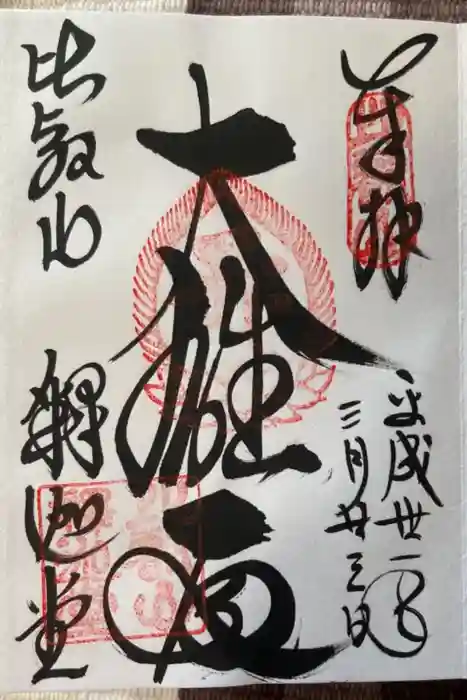 奉拝
平成卅一年
三月廿三日
大雄殿
比叡山
釋迦堂